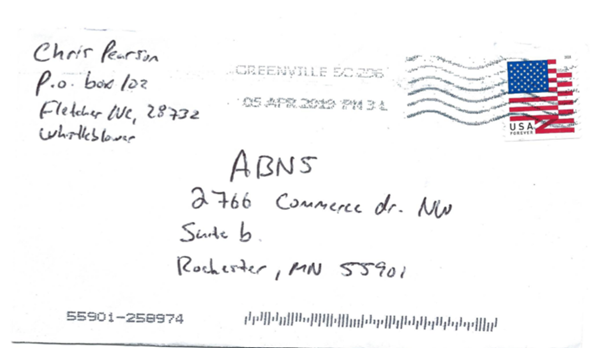 Chris Pearson
P.O. box 102
Fletcher NC, 28732
Whistleblower
GREENVILLE SC 296
05 APR 2019 PM 3 L
USA
FOREVER
ABNS
2766 Commerce dr. NW
Suite b.
Rochester, MN 55901
55901-258974